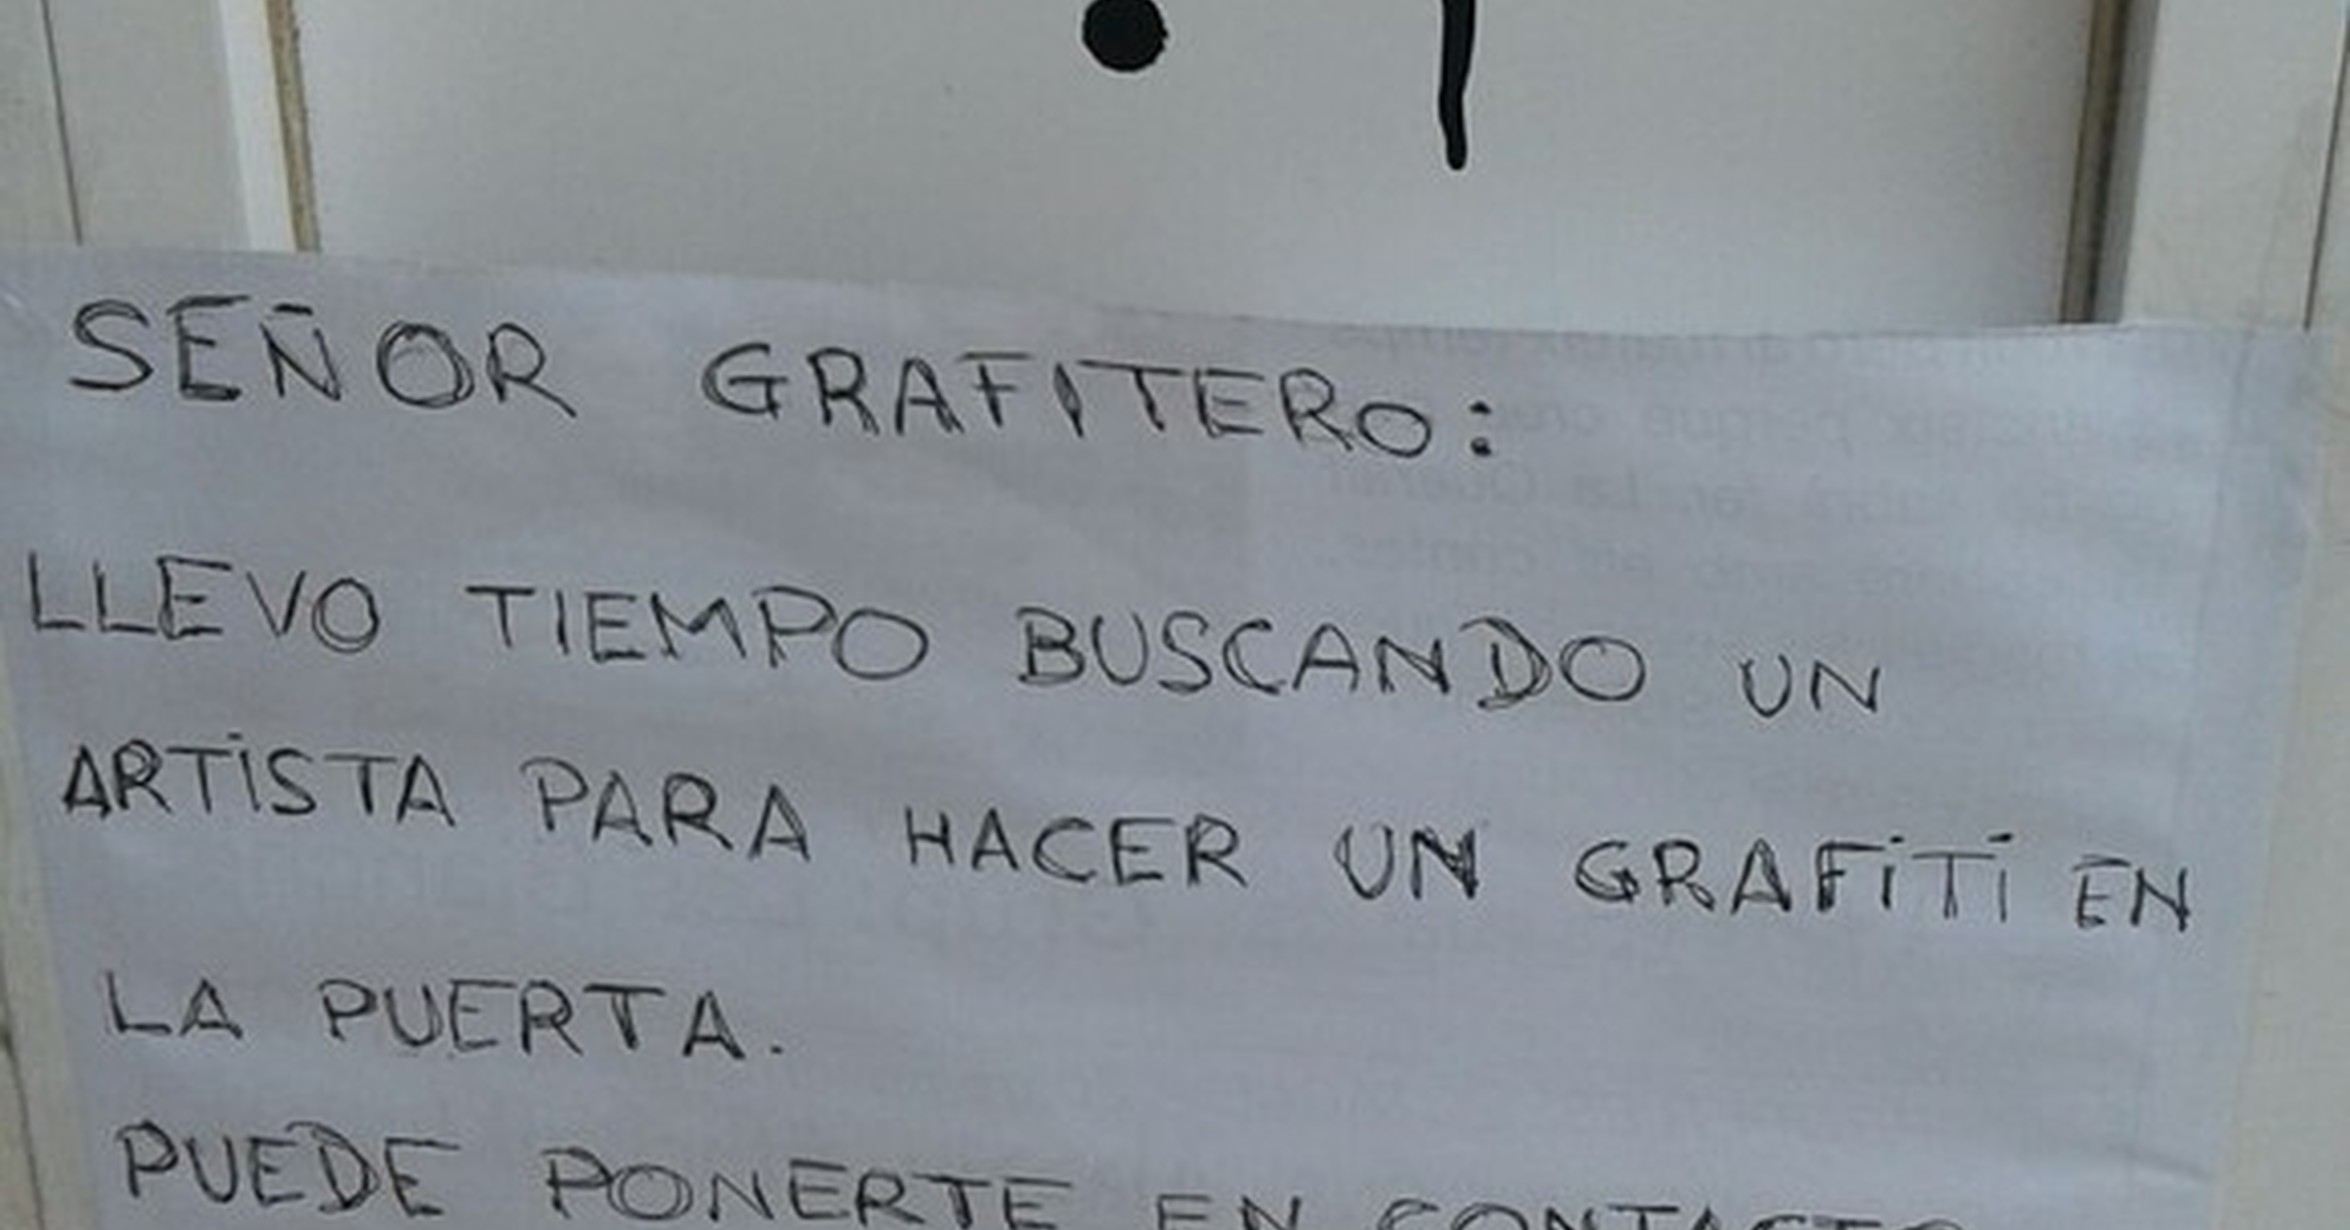 SEÑOR GRAFITERO:
LLEVO TIEMPO BUSCANDO UN
ARTISTA PARA HACER UN GRAFITI EN
LA PUERTA.
PUEDE PONERTE EN CONTACTO